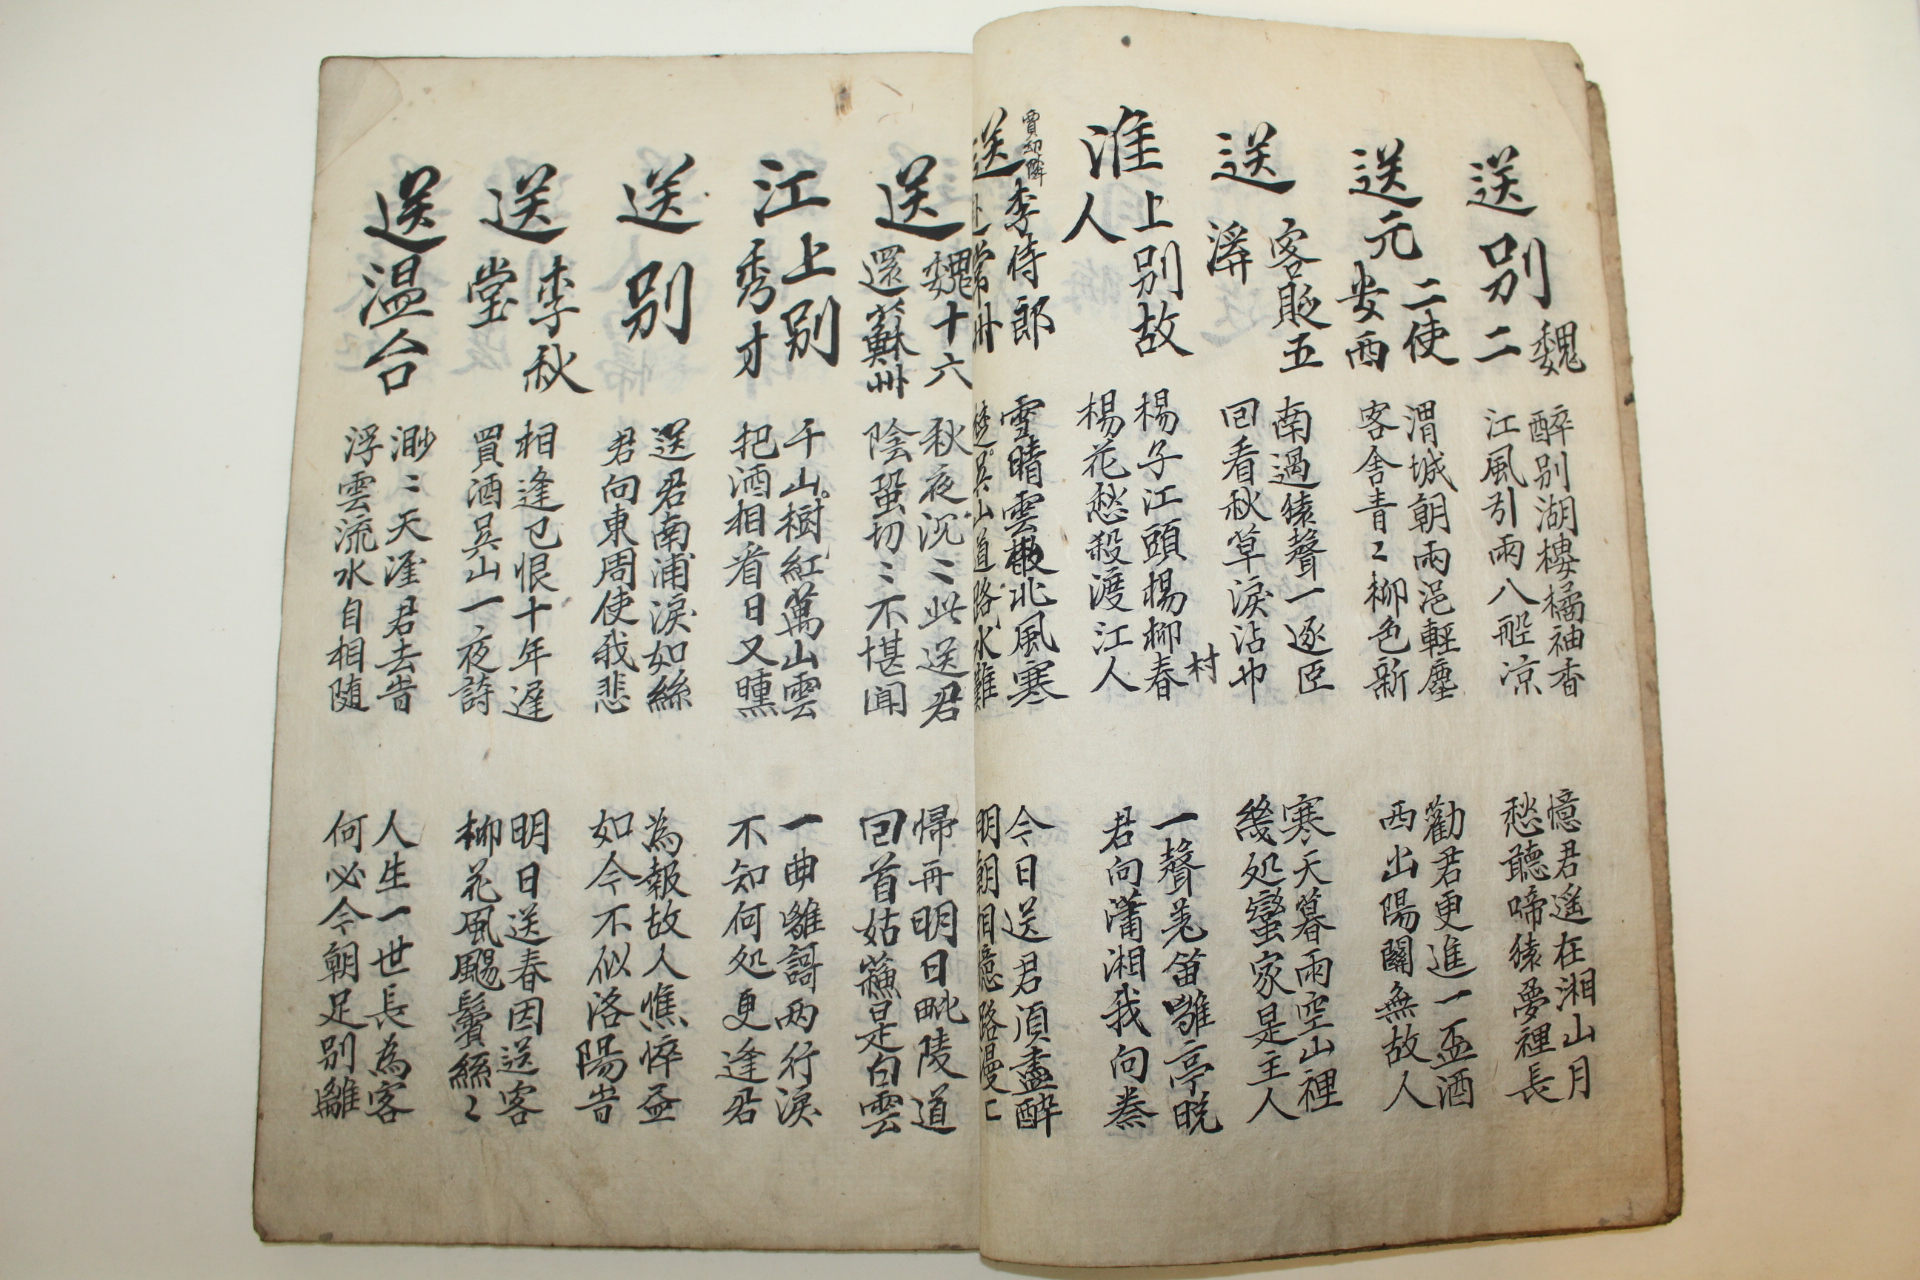 送別魏二
醉別湖樓橘袖香
江風引雨入舡凉
憶君遙在湘山月
愁聽啼猿夢裡長
送元二使安西
渭城朝雨浥輕塵
客舍青〻柳色新
勸君更進一盃酒
西出陽關無故人
送客貶五溪
南過猿聲一逐臣
回看秋草淚沾巾
寒天暮雨空山裡
幾処蠻家是主人
村
淮上別故人
楊子江頭楊柳春
楊花愁殺渡江人
一聲羌笛離亭晩
君向瀟湘我向秦
賈幼隣
送李侍郎赴常州
雪晴雲散北風寒
楚水吳山道路難
今日送君須盡醉
明朝相憶路漫〻
送魏十六還蘇州
秋夜沉〻此送君
陰蛩切〻不堪聞
帰再明日毗陵道
回首姑蘓是白雲
江上別秀才
千山樹紅萬山雲
把酒相看日又曛
一曲離謌両行淚
不知何処更逢君
送別
送君南浦淚如絲
君向東周使我悲
為報故人憔悴益
如今不似洛陽旹
送李秋堂
相逢已恨十年遲
買酒吳山一夜詩
明日送春因送客
柳花風颺鬢絲〻
送温台
渺〻天涯君去旹
浮雲流水自相随
人生一世長為客
何必今朝足別離